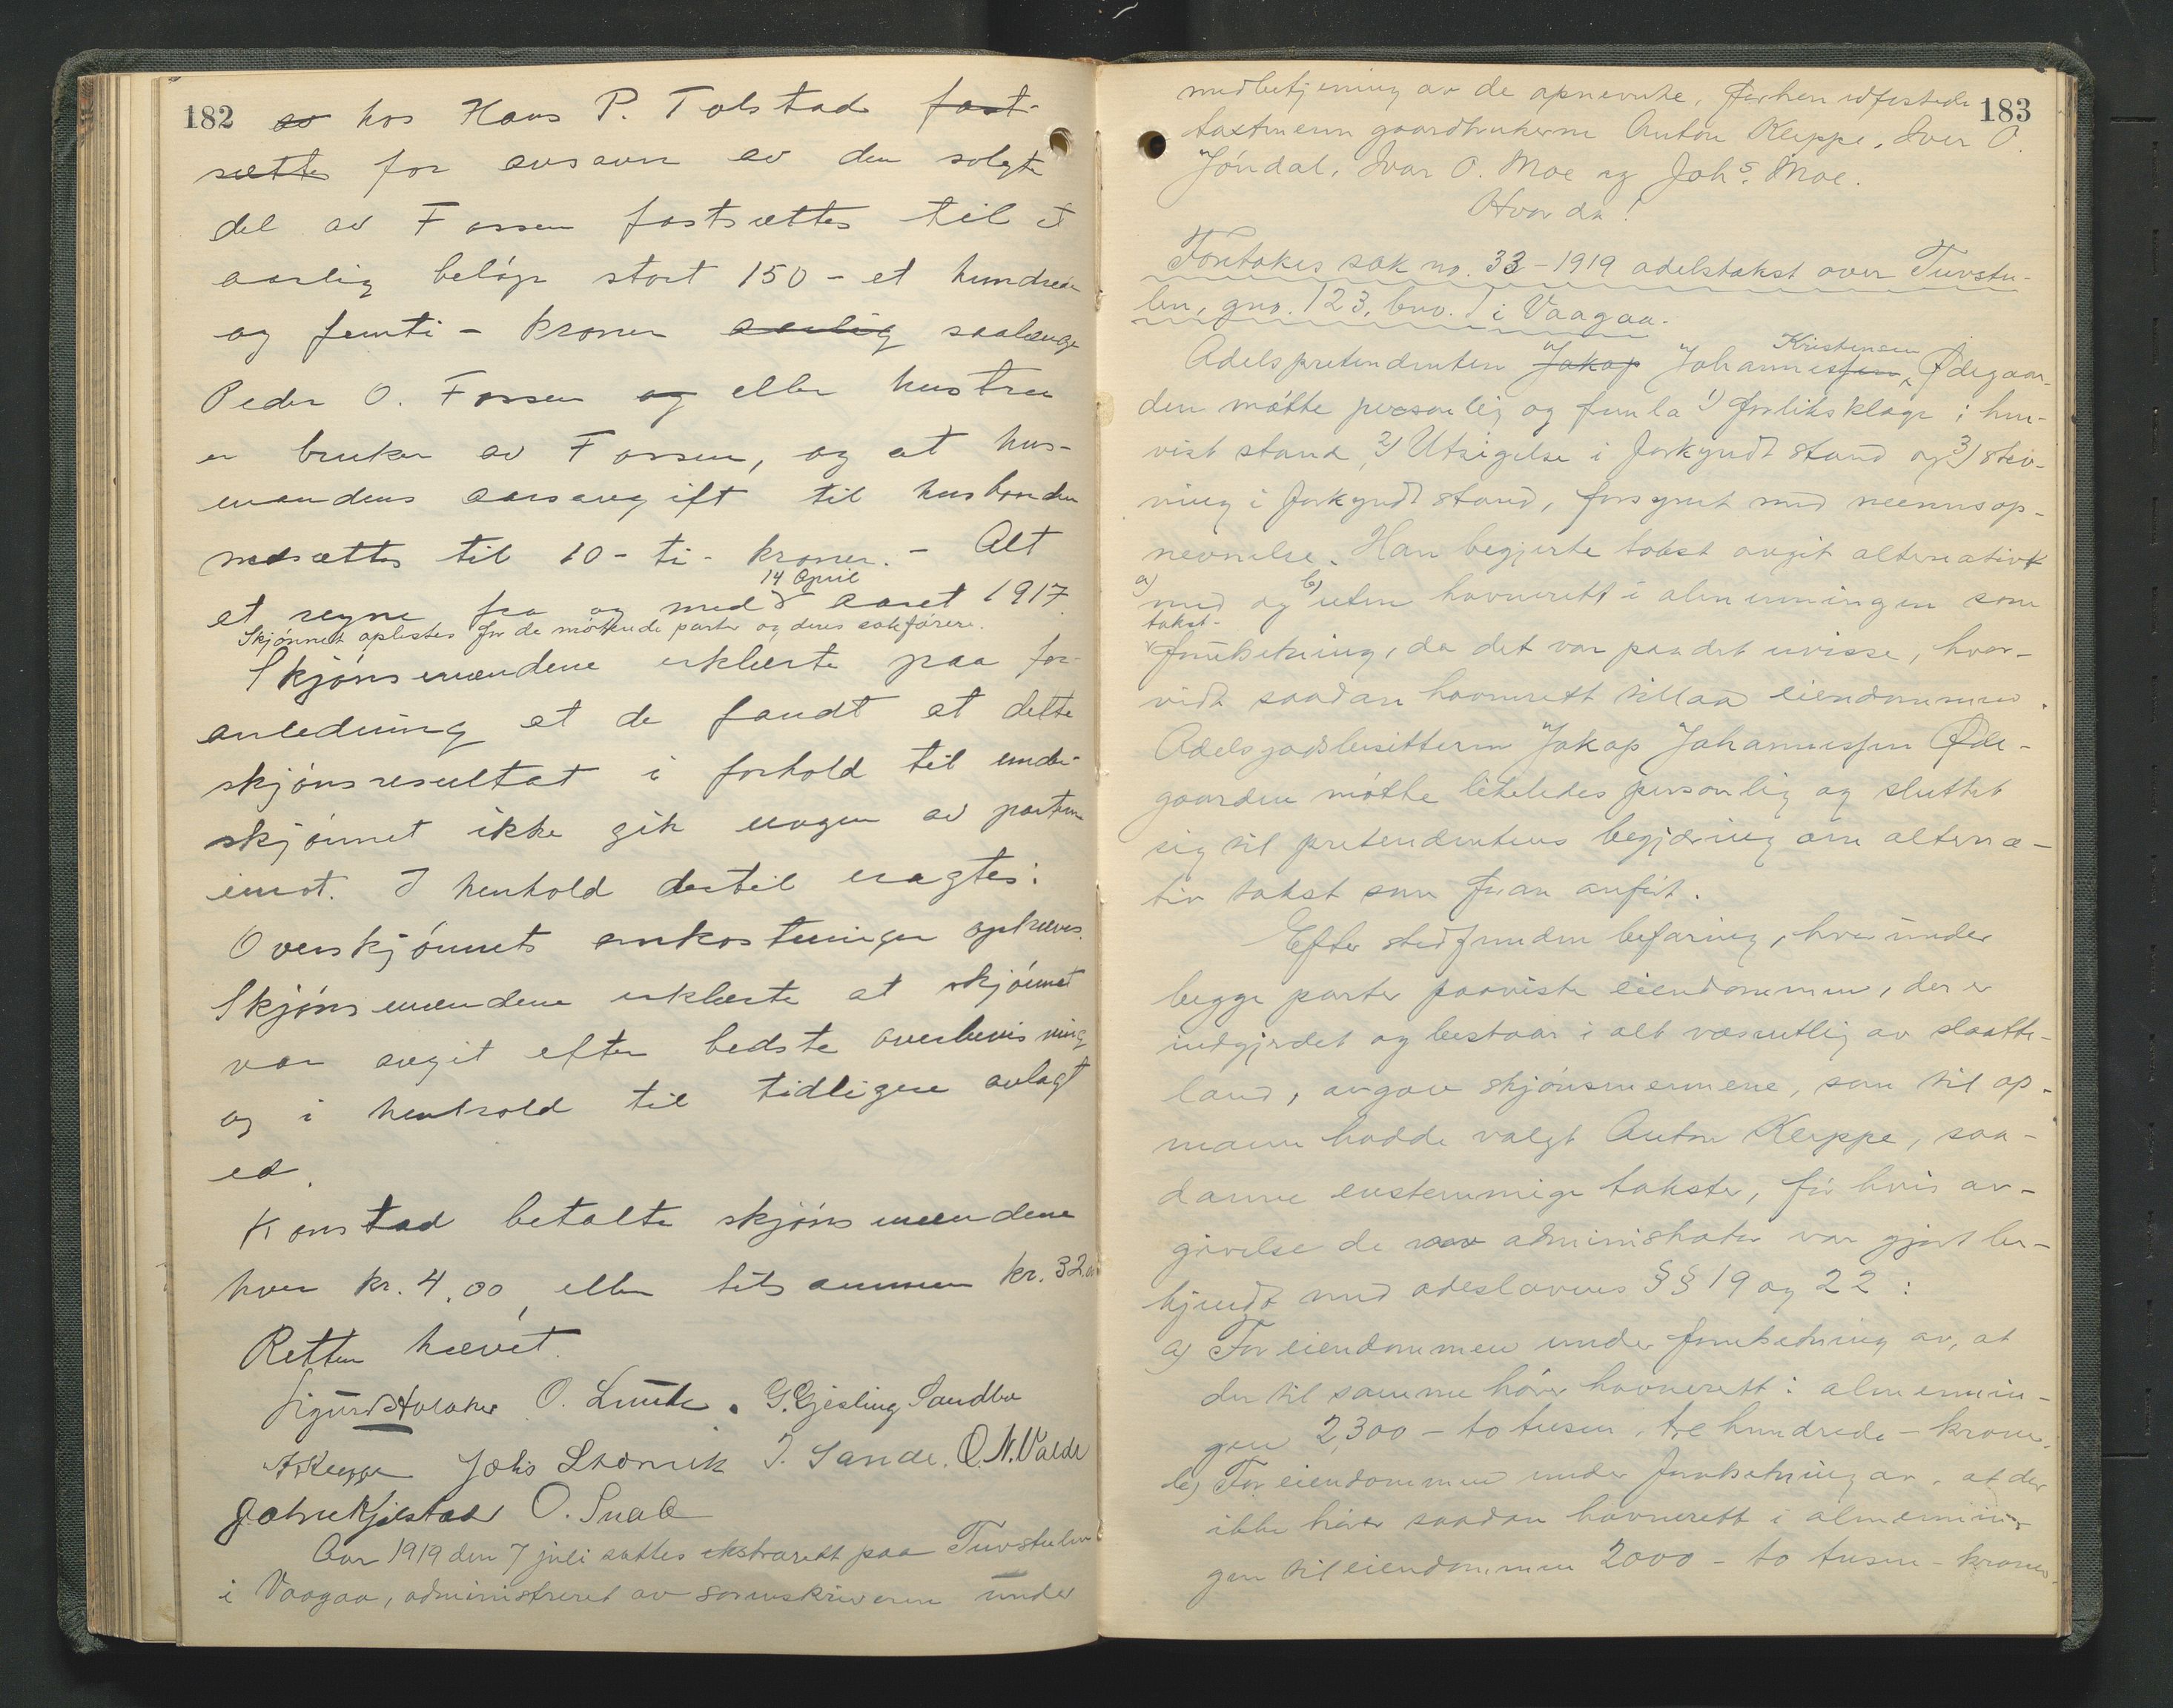 182
av hos Hans P. Tolstad fast-
sættes for avsavn av den solgte
del av Fossen fastsættes til et
aarlig beløp stort 150 - et hundrede
og femti - kroner aarlig saalænge
Peder O. Fossen og eller hustru
er bruker av Fossen, og at hus-
mandens aarsavgift til husbonden
nedsættes til 10 - ti - kroner. - Alt
14 april
at regne fra og med aaret 1917.
Skjønnet oplestes for de møtende parter og deres sakførere.
Skjønsmændene erklærte paa for-
anledning at de fandt at dette
skjønsresultat i forhold til under-
skjønnet ikke gik nogen av parterne
imot. I henhold dertil eragtes:
Overskjønnets omkostninger ophæves.
Skjønsmændene erklærte at skjønnet
var avgit efter bedste overbevisning
og i henhold til tidligere avlagt
ed.
Konstad betalte skjønsmændene
hver kr. 4,00, eller tilsammen kr. 32.00
Retten hævet.
O. Lunde. G. Gjesling Sandbo
A Kleppe Johs I. Sande. O. N. Valde
O. Snale
Aar 1919 den 7 juli sattes ekstrarett paa Tuvstulen
i Vaagaa, administreret av sorenskriveren under
183
medbetjening av de opnevnte, forhen edfestede
takstmenn gaardbrukerne Anton Kleppe, Iver O.
Jøndal, Ivar O. Moe og Johs. Moe.
Hvorda!
Foretokes sak no. 33-1919 odelstakst over Tuvstu-
len, gno. 123, bno. 1 i Vaagaa.
Kristensen
Odelspretendenten Jakop Johannessen Ødegaar-
den møtte personlig og femla 1) forliksklage i hen-
vist stand, 2) Utsigelse i forkyndt stand og 3) stev-
ning i forkyndt stand, forsynt med mennsop-
nevnelse. Han begjerte takst avgit alternativt
a) med og b) uten havnerett i almenningen som
takst-
forutsetning, da det var paa det uvisse, hvor-
vidt saadan havnerett tillaa eiendommen.
Odelsgodsbesitteren Jakop Johannessen Øde-
gaarden møtte likeledes personlig og sluttet
sig til pretendentens begjæring om alterna-
tiv takst som foran anført.
Efter stedfunden befaring, hvorunder
begge parter paaviste eiendommen, der er
indgjerdet og bestaar i alt væsentlig av slaatte-
land, avgav skjønsmennene, som til op-
mann hadde valgt Anton Kleppe, saa-
danne enstemmige takster, før hvis av-
givelse de av administrator var gjort be-
kjendt med odelslovens §§ 19 og 22:
a) For eiendommen under forutsetning av, at
der til samme hører havnerett i almennin-
gen 2300 - to tusen, tre hundrede - kroner.
b) For eiendommen under forutsetning av, at der
ikke hører saadan havnerett i almennin-
gen til eiendommen 2000 - to tusen - kroner.